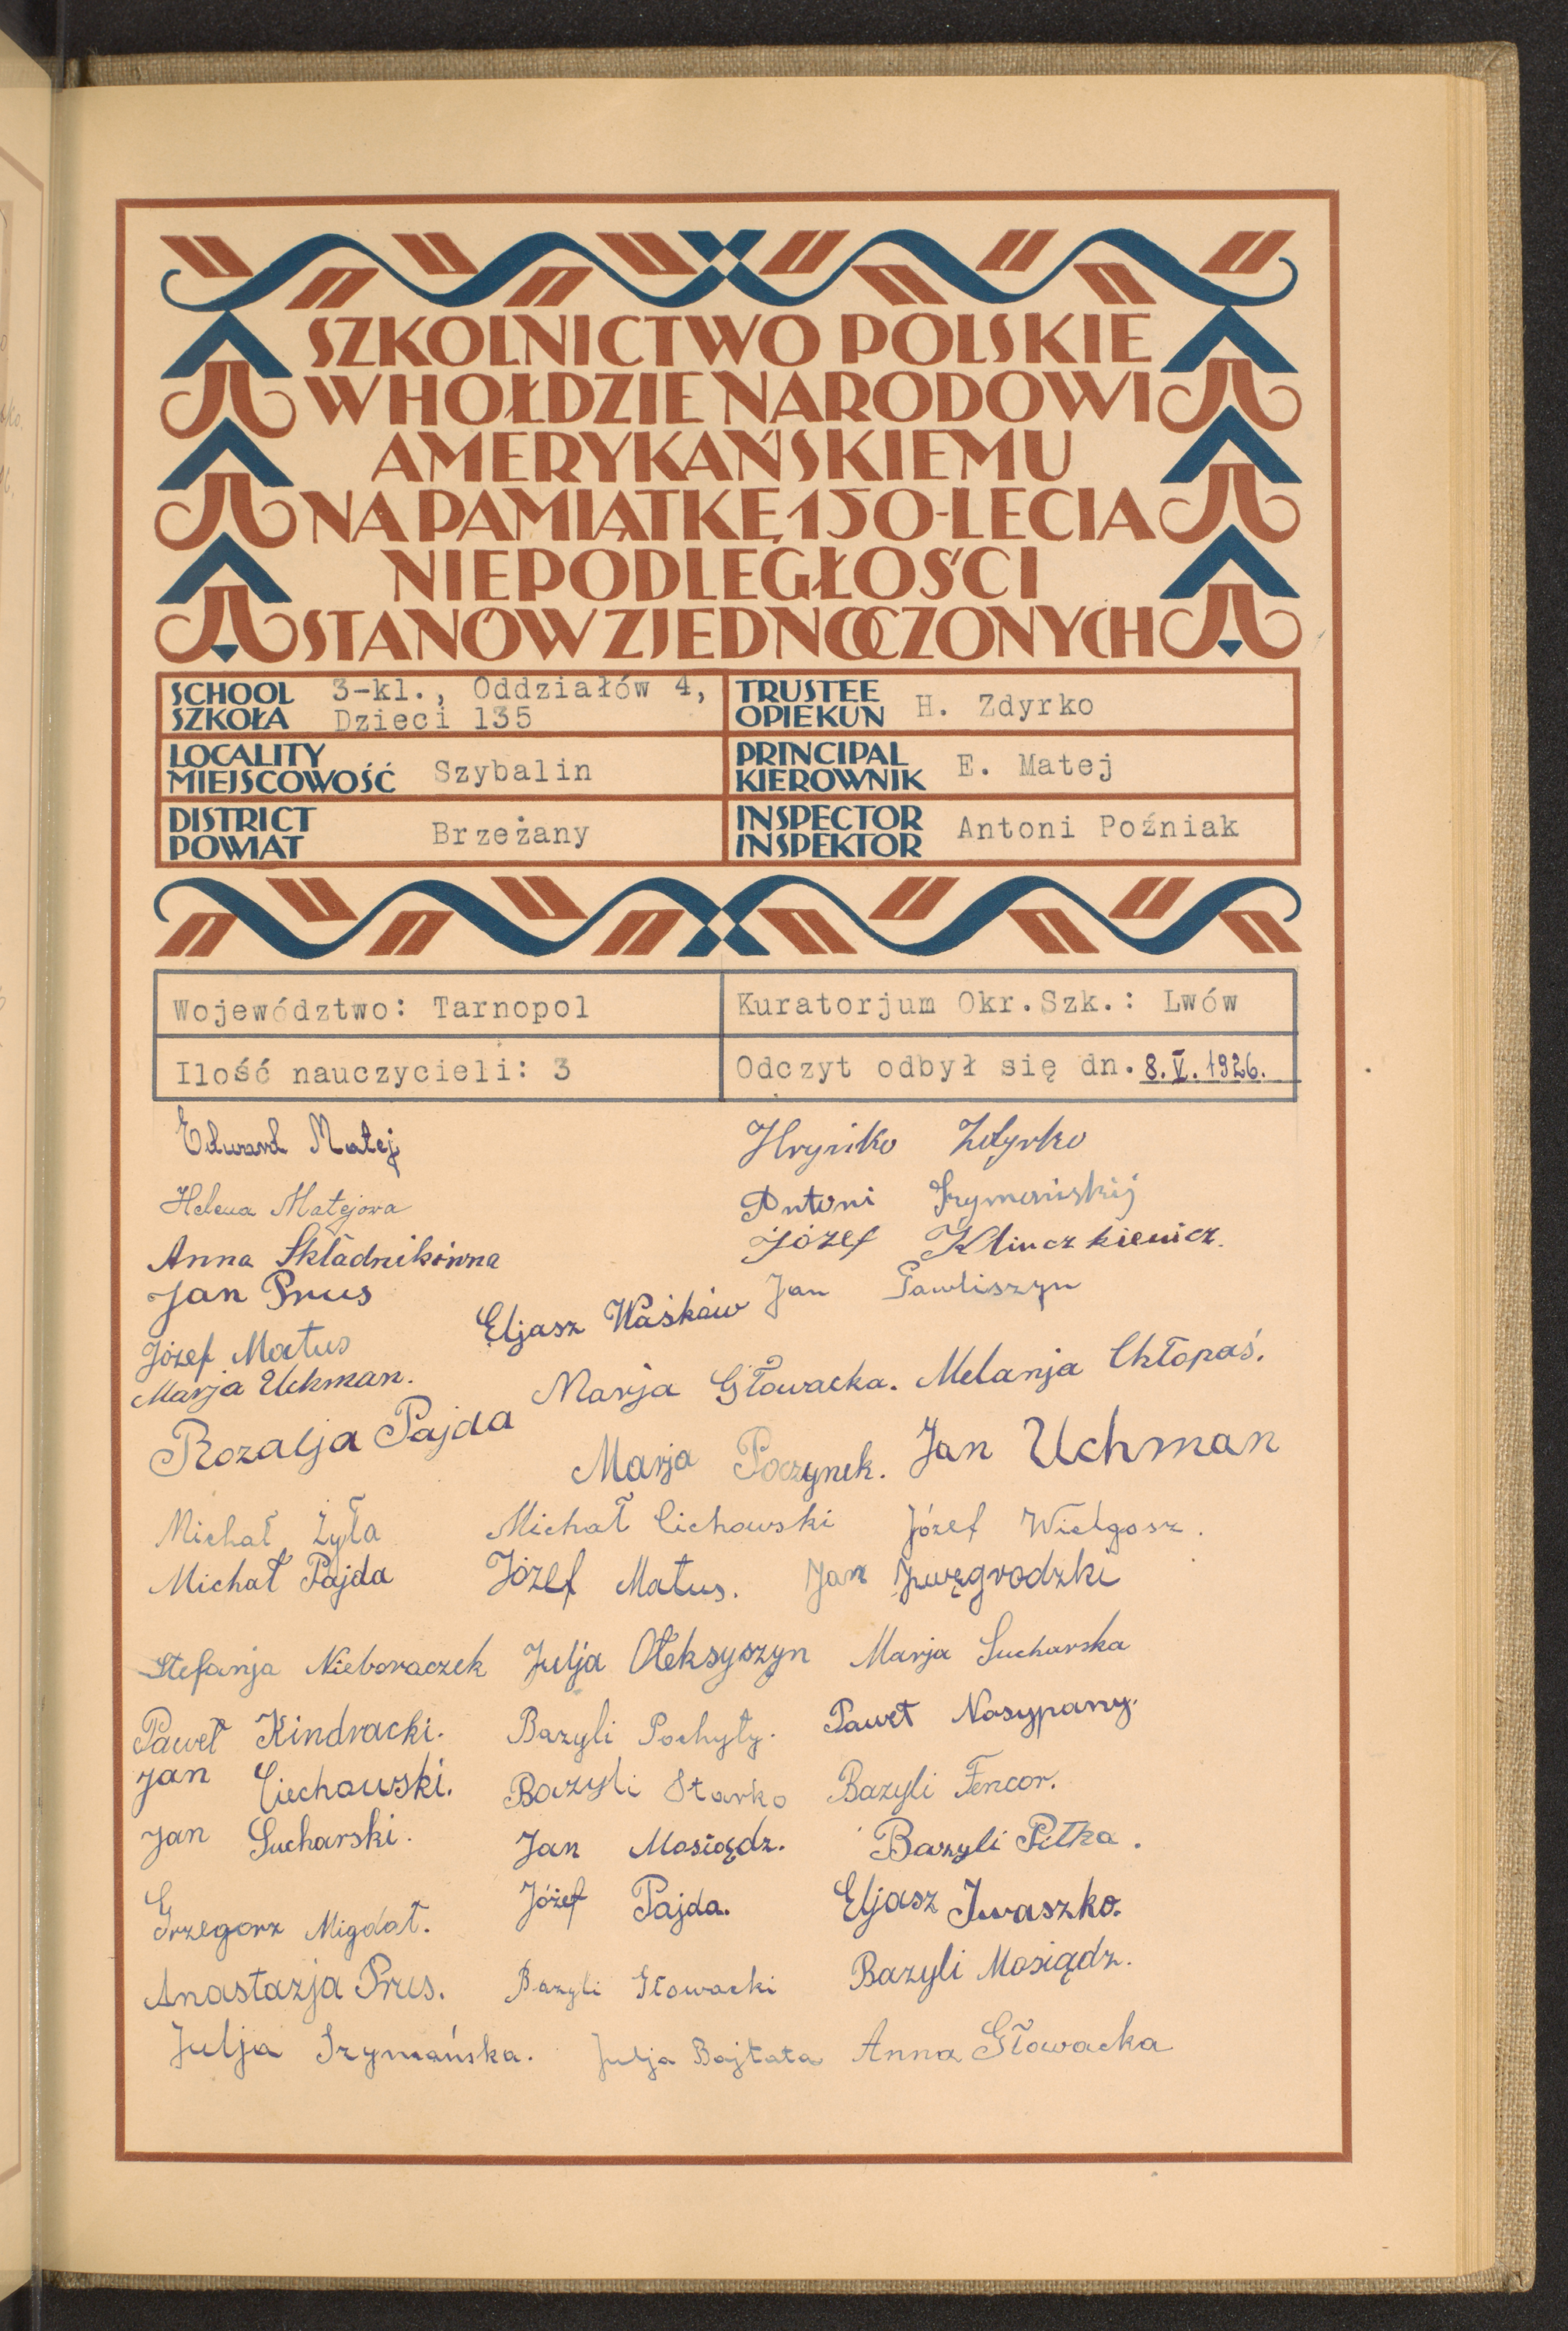 SZKOLNICTWO POLSKIE
W HOŁDZIE NARODOWI
AMERYKAŃSKIEMU
NA PAMIĄTKĘ 150-LECIA
NIEPODLEGŁOŚCI
STANÓW ZJEDNOCZONYCH
SCHOOL
SZKOŁA
3-kl., Oddziałów 4,
Dzieci 135
TRUSTEE
OPIEKUN
H. Zdyrko
LOCALITY
MIEJSCOWOŚĆ
Szybalin
PRINCIPAL
KIEROWNIK
E. Matej
DISTRICT
POWIAT
Brzeżany
INSPECTOR
INSPEKTOR
Antoni Poźniak
Województwo: Tarnopol
Kuratorjum Okr.Szk.: Lwów
Ilość nauczycieli: 3
Odczyt odbył się dn. 8.V.1926.
Edward Matej
Hryńko Zdyrko
Helena Matejowa
Antoni
Anna Składnikówna
Józef Klimczkiewicz.
Jan Prus
Eljasz Waśków
Jan Pawliszyn
Józef Matus
Marja Uchman.
Marja Głowacka. Melanja Chłopaś.
Rozalja Pajda
Marja Poczynek. Jan Uchman
Michał Żyła Michał Cichowski Józef Wielgosz.
Michał Pajda Józef Matus. Jan
Stefanja Nieboraczek Julja Ołeksyszyn Marja Sucharska
Paweł Kindracki. Bazyli Pochyły. Paweł Nasypany.
Jan Ciechowski. Bazyli Starko Bazyli Fencor.
Jan Sucharski. Jan Mosiądz. Bazyli Piłka.
Grzegorz Migdał. Józef Pajda. Eljasz Iwaszko.
Anastazja Prus. Bazyli Głowacki Bazyli Mosiądz.
Julja Szymańska. Julja Bajtała Anna Głowacka